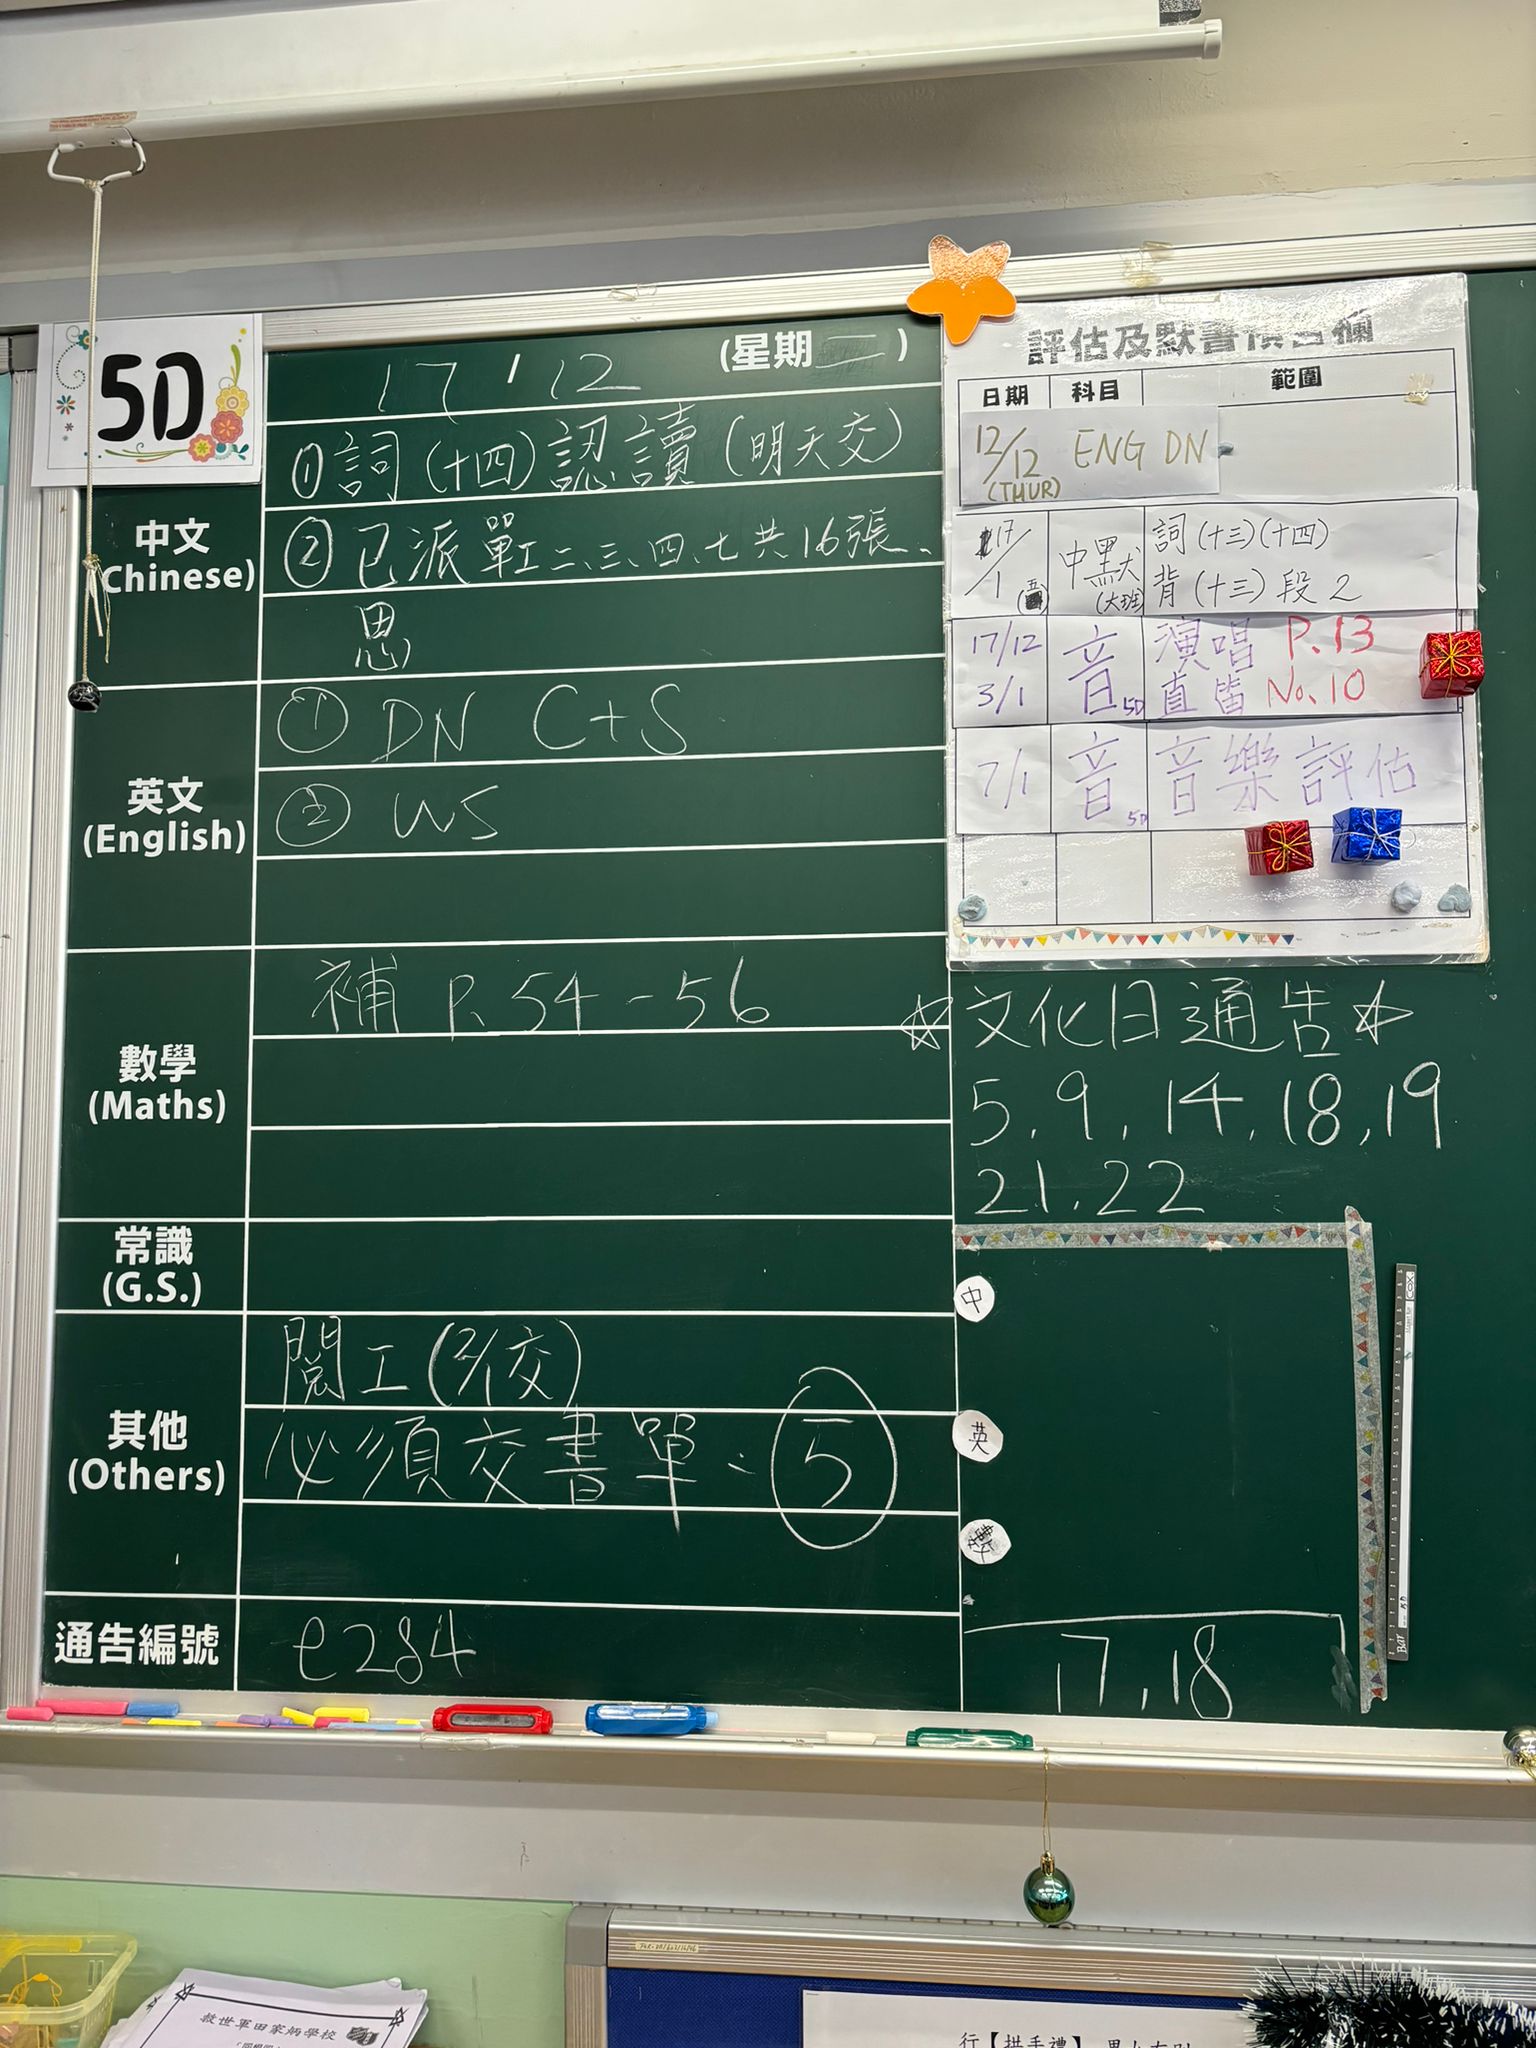 5D
17 / 12 (星期二)
中文
(Chinese)
①詞(十四)認讀(明天交)
②已派單二、三、四、七共16張、
思
英文
(English)
① DN C+S
② WS
數學
(Maths)
補 P. 54-56
常識
(G.S.)
其他
(Others)
閱工(2/1交)
必須交書單: ⑤
通告編號
e284
評估及默書預告欄
日期 科目 範圍
12/12 (THUR) ENG DN
17/1 (五) 中默 (大班) 詞(十三)(十四)
背(十三)段2
17/12 音 5D 演唱 P.13
3/1 直笛 No.10
7/1 音 5D 音樂評估
☆文化日通告☆
5, 9, 14, 18, 19
21, 22
中
英
數
17, 18
救世軍田家炳學校
行【拱手禮】